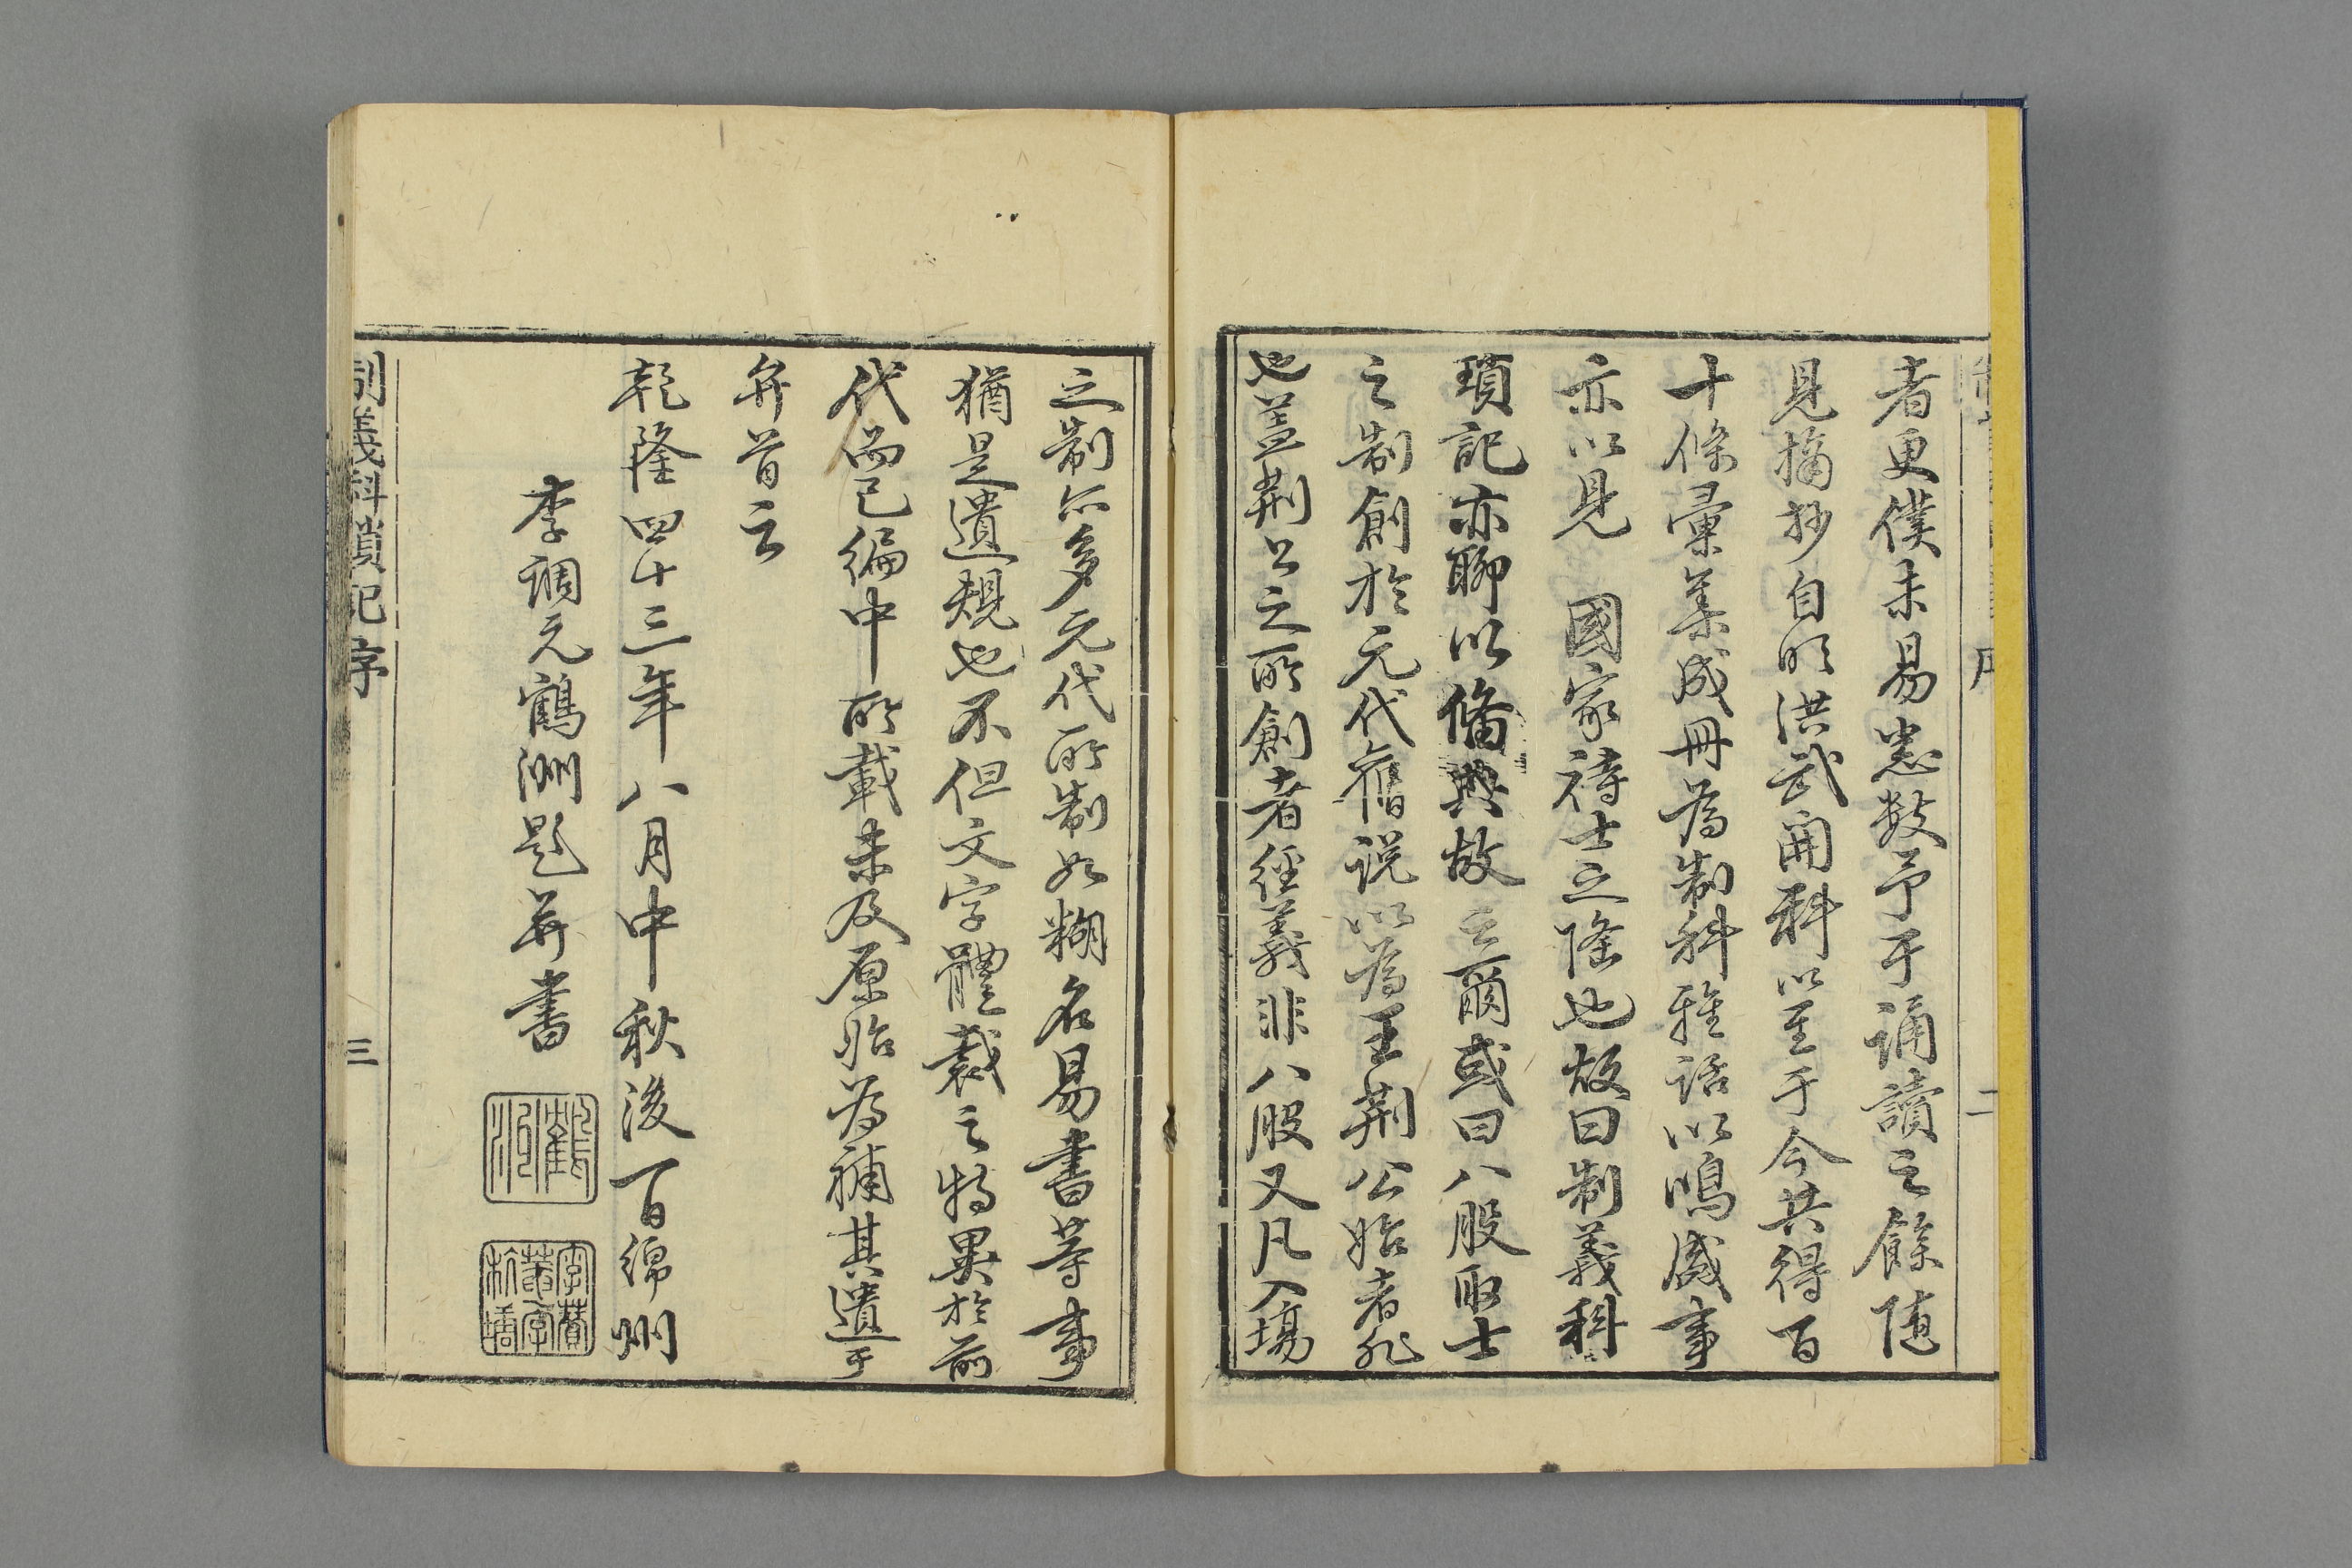 者更僕未易悉數予于誦讀之餘随
見摘抄自明洪武開科以至于今共得百
十條彙集成冊為制科雅話以鳴盛事
亦以見　國家待士之隆也故曰制義科
瑣記亦聊以備典故云爾或曰八股取士
之制創於元代舊説以為王荆公始者非
也盖荆公之所創者經義非八股又凡入塲
之制亦多元代所制如糊名易書等事
猶是遺規也不但文字體裁之特異於前
代而已編中所載未及原始為補其遺于
弁首云
乾隆四十三年八月中秋後一日綿州
李調元鶴洲題并書
制義科瑣記序
三